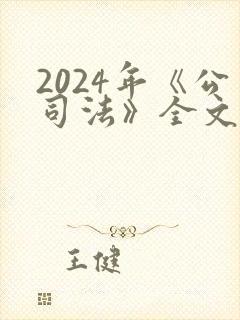 2024年《公
司法》全文
王健